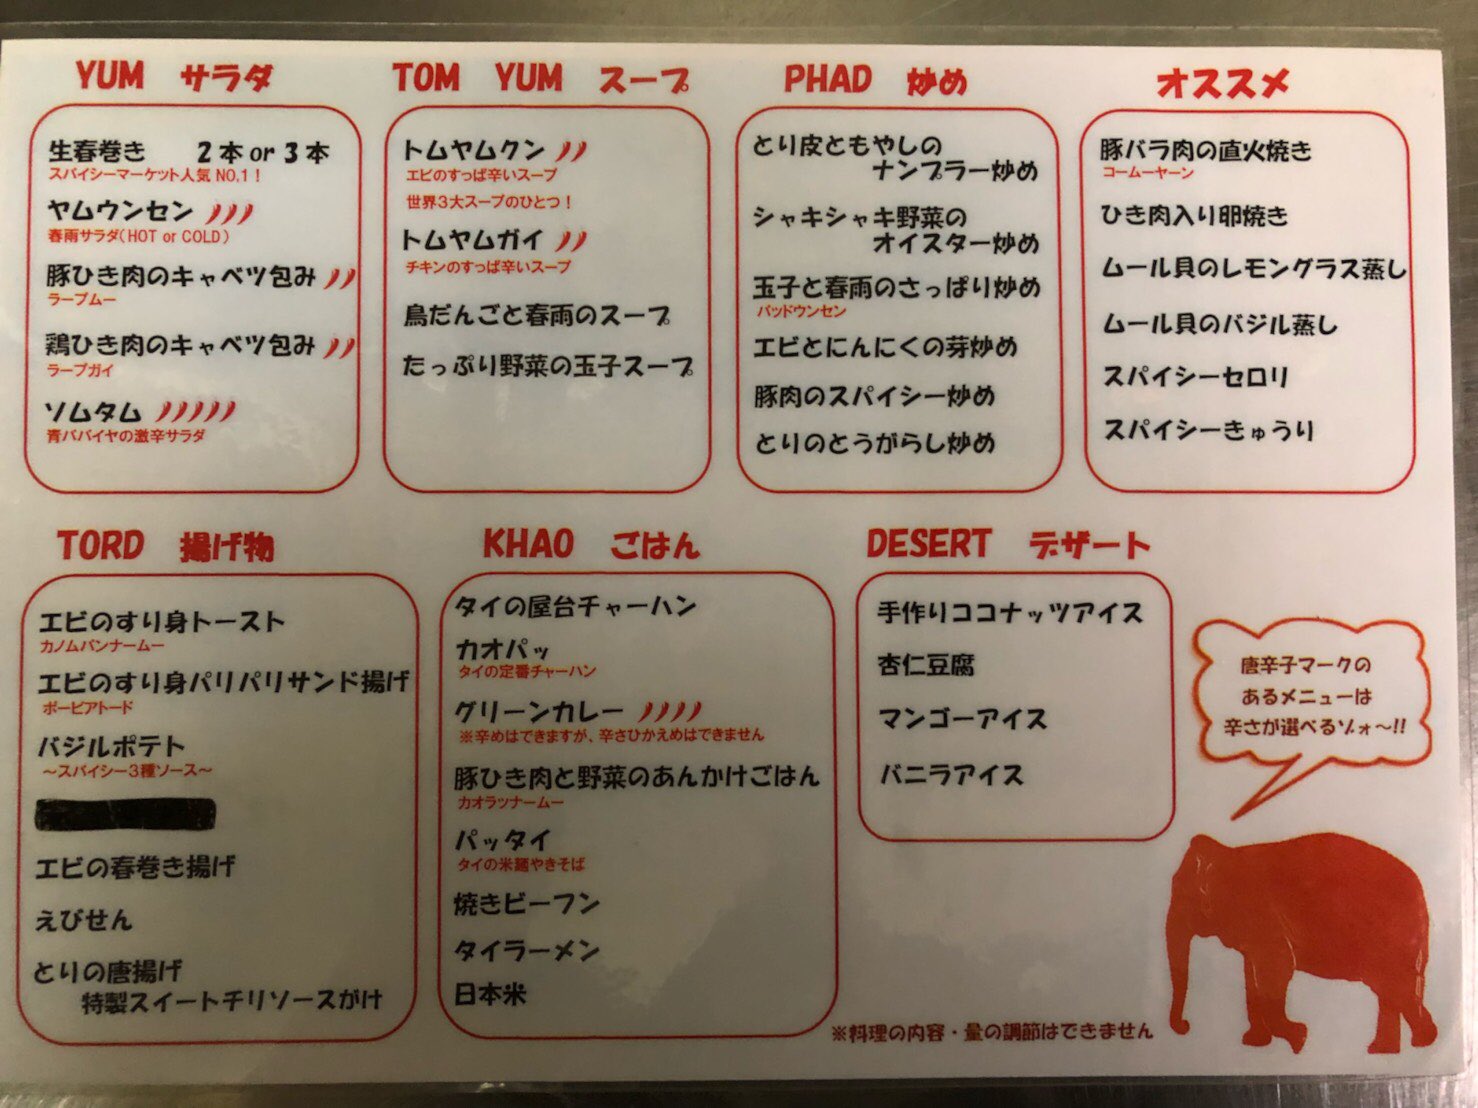 YUM サラダ
生春巻き 2本or3本
スパイシーマーケット人気 NO,1！
ヤムウンセン
春雨サラダ（HOT or COLD）
豚ひき肉のキャベツ包み
ラープムー
鶏ひき肉のキャベツ包み
ラープガイ
ソムタム
青パパイヤの激辛サラダ
TOM YUM スープ
トムヤムクン
エビのすっぱ辛いスープ
世界3大スープのひとつ！
トムヤムガイ
チキンのすっぱ辛いスープ
鳥だんごと春雨のスープ
たっぷり野菜の玉子スープ
PHAD 炒め
とり皮ともやしの
ナンプラー炒め
シャキシャキ野菜の
オイスター炒め
玉子と春雨のさっぱり炒め
パッドウンセン
エビとにんにくの芽炒め
豚肉のスパイシー炒め
とりのとうがらし炒め
オススメ
豚バラ肉の直火焼き
コームーヤーン
ひき肉入り卵焼き
ムール貝のレモングラス蒸し
ムール貝のバジル蒸し
スパイシーセロリ
スパイシーきゅうり
TORD 揚げ物
エビのすり身トースト
カノムパンナームー
エビのすり身パリパリサンド揚げ
ポーピアトード
バジルポテト
～スパイシー3種ソース～
エビの春巻き揚げ
えびせん
とりの唐揚げ
特製スイートチリソースがけ
KHAO ごはん
タイの屋台チャーハン
カオパッ
タイの定番チャーハン
グリーンカレー
※辛めはできますが、辛さひかえめはできません
豚ひき肉と野菜のあんかけごはん
カオラッナームー
パッタイ
タイの米麺やきそば
焼きビーフン
タイラーメン
日本米
DESERT デザート
手作りココナッツアイス
杏仁豆腐
マンゴーアイス
バニラアイス
唐辛子マークの
あるメニューは
辛さが選べるゾォ～!!
※料理の内容・量の調節はできません